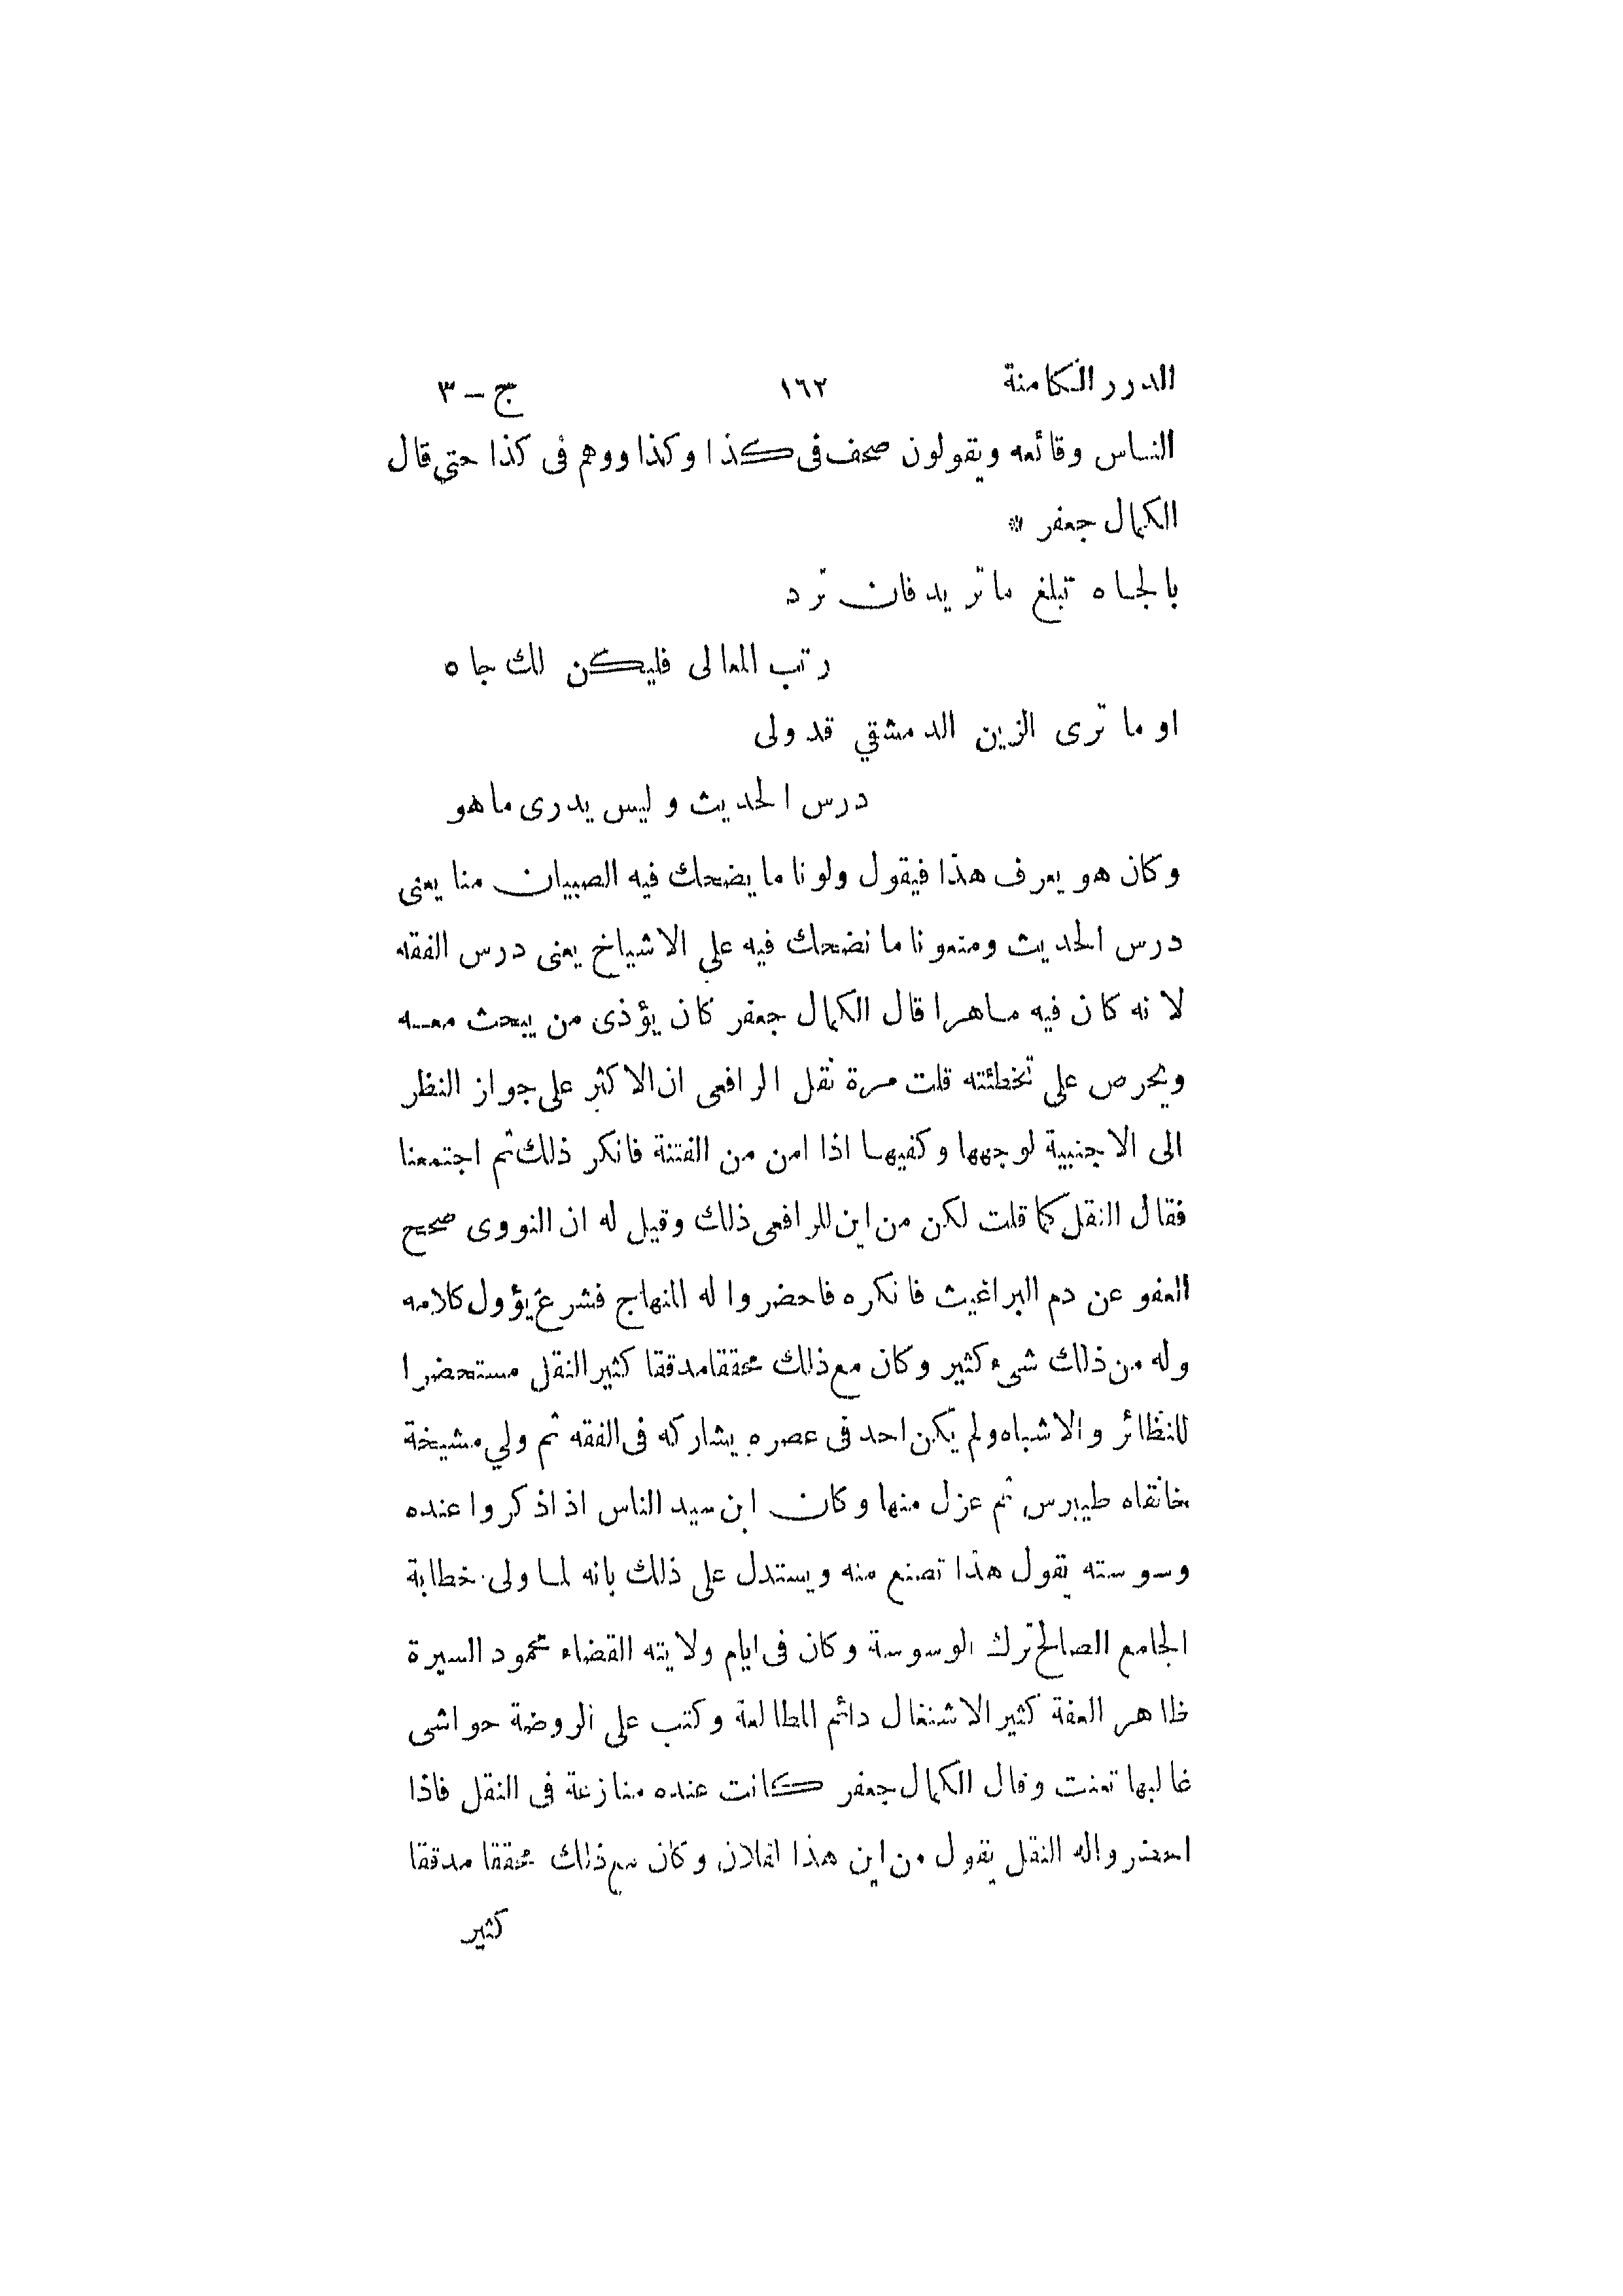 الدرر الكامنة ١٦٢ ج – ٣
الناس وقائعه ويقولون صحف فى كذا وكذا ووهم فى كذا حتى قال
الكمال جعفر *
بالجاه تبلغ ما تريد فان ترد
رتب المعالى فليكن لك جاه
او ما ترى الزين الدمشقي قد ولى
درس الحديث وليس يدرى ما هو
وكان هو يعرف هذا فيقول ولونا ما يضحك فيه الصبيان منا يعنى
درس الحديث ومنعونا ما نضحك فيه على الاشياخ يعنى درس الفقه
لانه كان فيه ماهرا قال الكمال جعفر كان يؤذى من يبحث معه
ويحرص على تخطئته قلت مرة نقل الرافعى ان الاكثر على جواز النظر
الى الاجنبية لوجهها وكفيها اذا امن من الفتنة فانكر ذلك ثم اجتمعنا
فقال النقل كما قلت لكن من اين للرافعى ذلك وقيل له ان النووى صحح
العفو عن دم البراغيث فانكره فاحضروا له المنهاج فشرع يؤول كلامه
وله من ذلك شىء كثير وكان مع ذلك محققا مدققا كثير النقل مستحضرا
للنظائر والاشباه ولم يكن احد فى عصره يشاركه فى الفقه ثم ولي مشيخة
خانقاه طيبرس ثم عزل منها وكان ابن سيد الناس اذا ذكروا عنده
وسوسته يقول هذا تصنع منه ويستدل على ذلك بانه لما ولى خطابة
الجامع الصالح ترك الوسوسة وكان فى ايام ولايته القضاء محمود السيرة
ظاهر العفة كثير الاشتغال دائم المطالعة وكتب على الروضة حواشى
غالبها تعنت وقال الكمال جعفر كانت عنده منازعة فى النقل فاذا
احضروا له النقل يقول من اين هذا لفلان وكان مع ذلك محققا مدققا
كثير